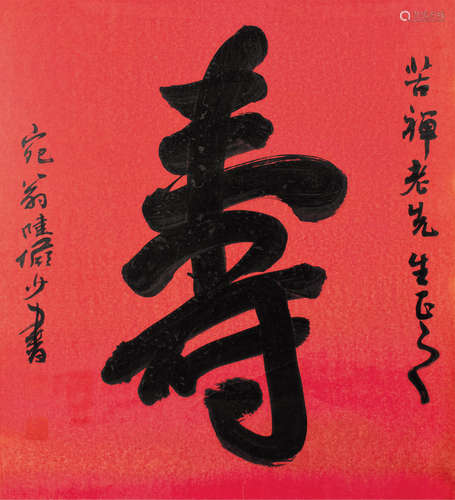 苦禅老先生正之
寿
宛翁陆俨少书